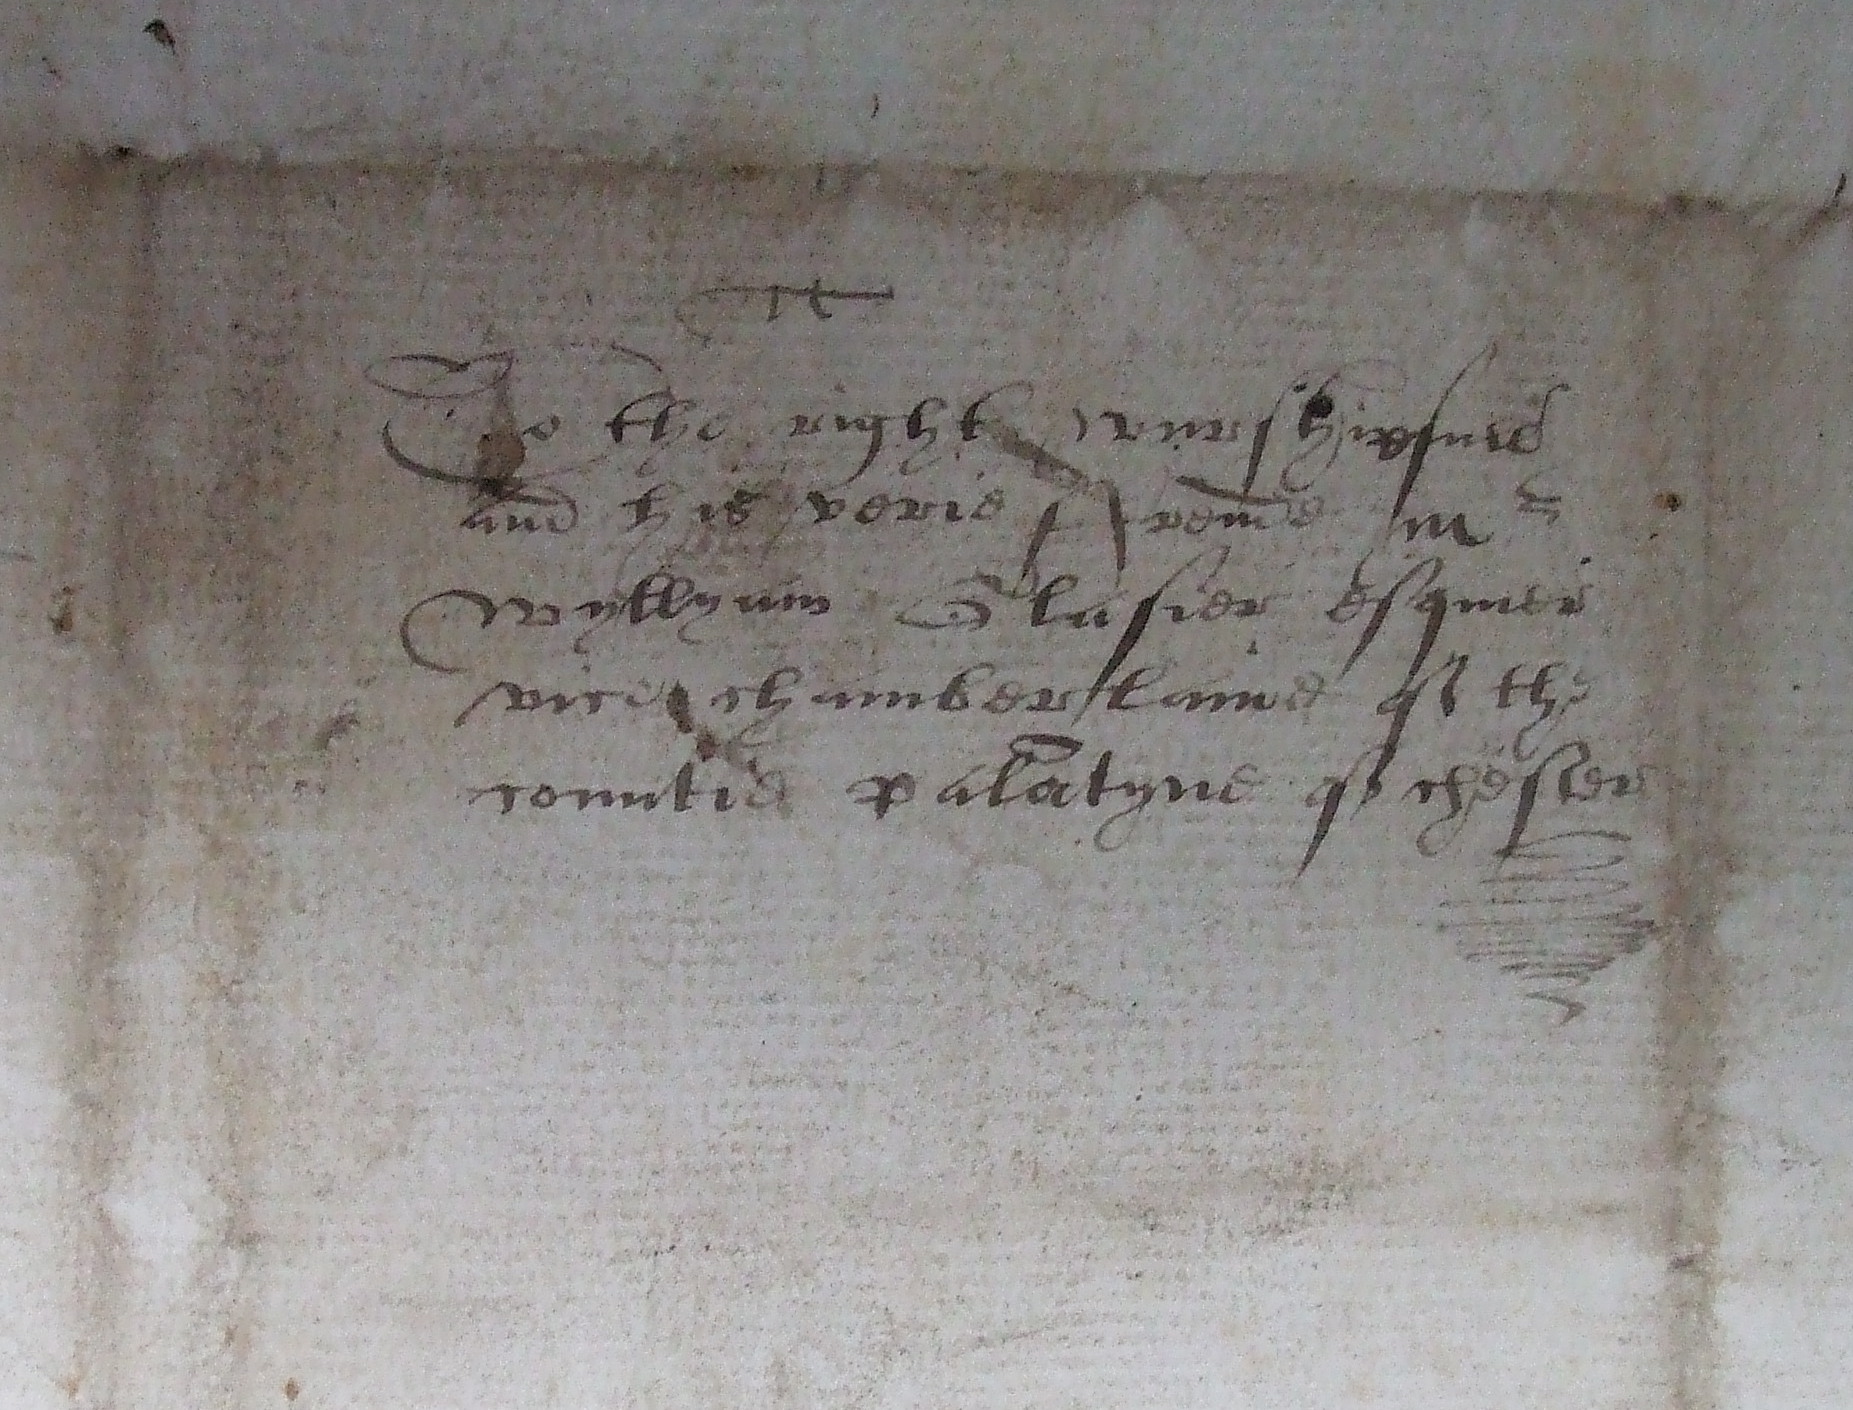 To the right wurshipfull
and his verie frende mr
Wyllyam Glasier esquier
vice chamberlaine of the
countie palatyne of chester